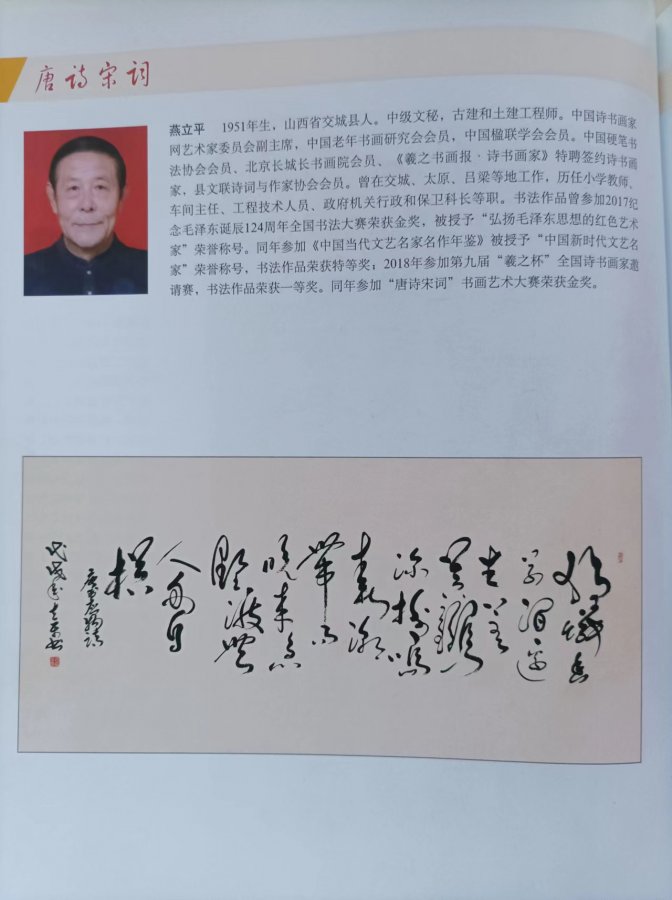 唐诗宋词
燕立平 1951年生，山西省交城县人。中级文秘，古建和土建工程师。中国诗书画家
网艺术家委员会副主席，中国老年书画研究会会员，中国楹联学会会员。中国硬笔书
法协会会员、北京长城长书画院会员、《羲之书画报·诗书画家》特聘签约诗书画
家，县文联诗词与作家协会会员。曾在交城、太原、吕梁等地工作，历任小学教师、
车间主任、工程技术人员、政府机关行政和保卫科长等职。书法作品曾参加2017纪
念毛泽东诞辰124周年全国书法大赛荣获金奖，被授予“弘扬毛泽东思想的红色艺术
家”荣誉称号。同年参加《中国当代文艺名家名作年鉴》被授予“中国新时代文艺名
家”荣誉称号，书法作品荣获特等奖；2018年参加第九届“羲之杯”全国诗书画家邀
请赛，书法作品荣获一等奖。同年参加“唐诗宋词”书画艺术大赛荣获金奖。
独怜幽
草涧边
生上有
黄鹂
深树鸣
春潮
带雨
晚来急
野渡无
人舟自
横
唐韦应物诗
戊戌年立平书